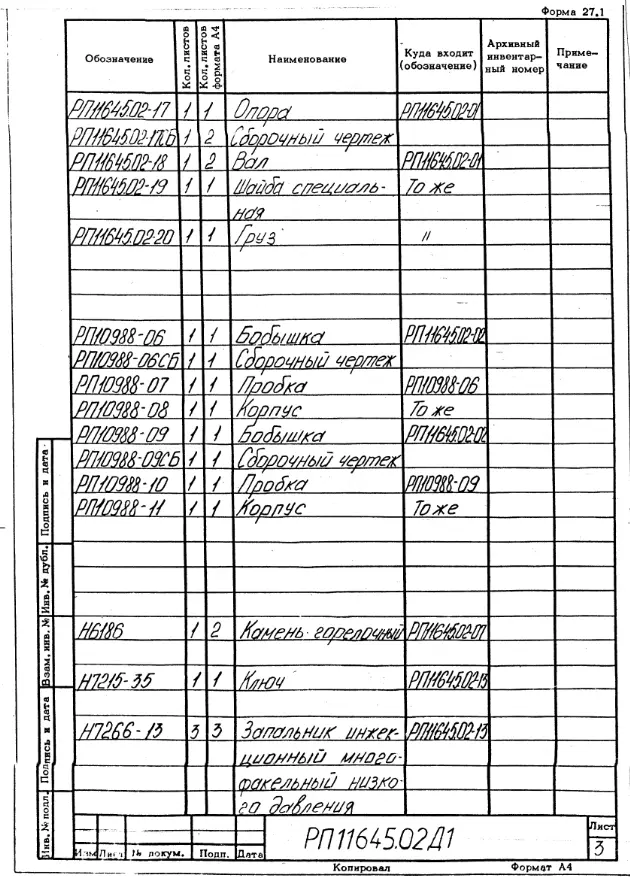 Форма 27.1
Обозначение Кол. листов Кол. листов формата А4 Наименование Куда входит (обозначение) Архивный инвентар- ный номер Приме- чание
РП11645.02-17 1 1 Опора РП11645.02-01
РП11645.02-17СБ 1 2 Сборочный чертеж
РП11645.02-18 1 2 Вал РП11645.02-01
РП11645.02-19 1 1 Шайба специаль- То же
ная
РП11645.02-20 1 1 Груз "
РП10988-06 1 1 Бобышка РП11645.02-02
РП10988-06СБ 1 1 Сборочный чертеж
РП10988-07 1 1 Пробка РП10988-06
РП10988-08 1 1 Корпус То же
РП10988-09 1 1 Бобышка РП11645.02-02
РП10988-09СБ 1 1 Сборочный чертеж
РП10988-10 1 1 Пробка РП10988-09
РП10988-11 1 1 Корпус То же
Н6186 1 2 Камень горелочный РП11645.02-07
Н7215-35 1 1 Ключ РП11645.02-13
Н7266-13 3 3 Запальник инжек- РП11645.02-13
ционный много-
факельный низко-
го давления
Подпись и дата
Инв. № дубл.
Взам. инв. №
Подпись и дата
Инв. № подл.
Изм Лист № докум. Подп. Дата
РП11645.02Д1
Лист
3
Копировал Формат А4